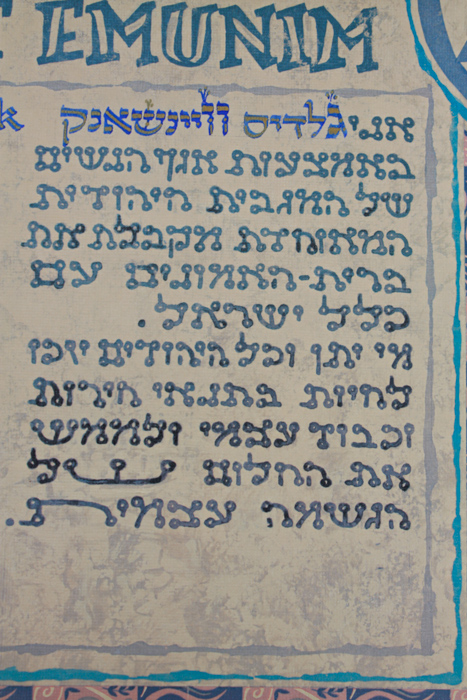 EMUNIM
אני גלדיס וויינשאנק
באמצעות אגף הנשים
של המגבית היהודית
המאוחדת מקבלת את
ברית-האמונים עם
כלל ישראל.
מי יתן וכל היהודים יזכו
לחיות בתנאי חירות
וכבוד עצמי ולממש
את החלום של
הגשמה עצמית.